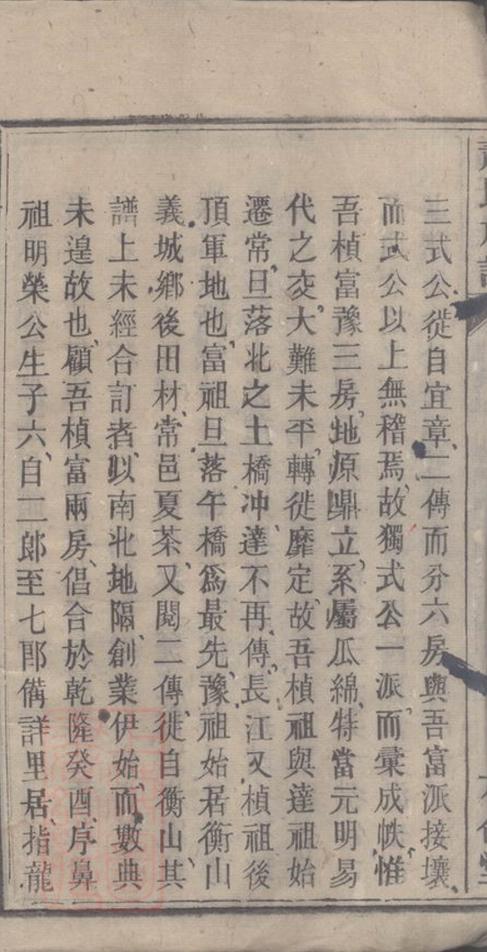 三式公從自宜章二傳而分六房與吾富派接壤
而式公以上無稽焉故獨式公一派而彙成帙惟
吾楨富豫三房地原鼎立系屬瓜綿特當元明易
代之交大難未平轉徙靡定故吾楨祖與達祖始
遷常旦落北之土橋冲達不再傳長江又楨祖後
頂軍地也富祖旦落午橋爲最先豫祖始居衡山
義城鄉後田材常邑夏茶又閱二傳徙自衡山其
譜上未經合訂者以南北地隔創業伊始而數典
未遑故也顧吾楨富兩房倡合於乾隆癸酉序鼻
祖明榮公生子六自二郎至七郎備詳里居指龍